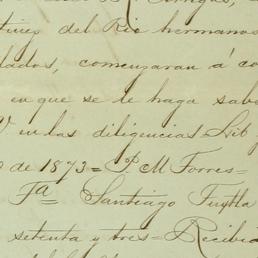 tines del Rio hermanos
dados, comenzaran á co
en que se le haga sabe
V en las diligencias Lib
de 1873 = P. M Torres =
Fª = Santiago Tuxtla
setenta y tres = Recibid